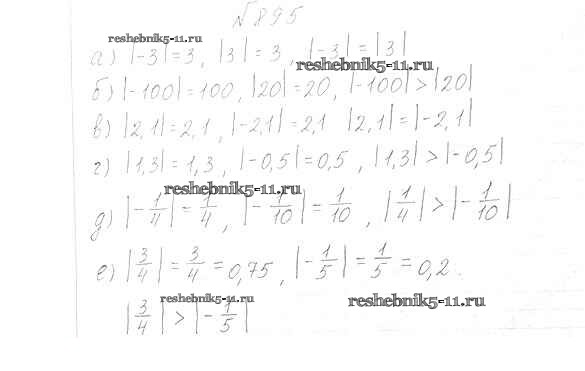 №895
reshebnik5-11.ru
а) |-3|=3, |3|=3, |-3|=|3|
reshebnik5-11.ru
б) |-100|=100, |20|=20, |-100|>|20|
в) |2,1|=2,1, |-2,1|=2,1 |2,1|=|-2,1|
г) |1,3|=1,3, |-0,5|=0,5, |1,3|>|-0,5|
reshebnik5-11.ru
д) |-1/4|=1/4, |-1/10|=1/10, |1/4|>|-1/10|
е) |3/4|=3/4=0,75, |-1/5|=1/5=0,2.
reshebnik5-11.ru reshebnik5-11.ru
|3/4|>|-1/5|